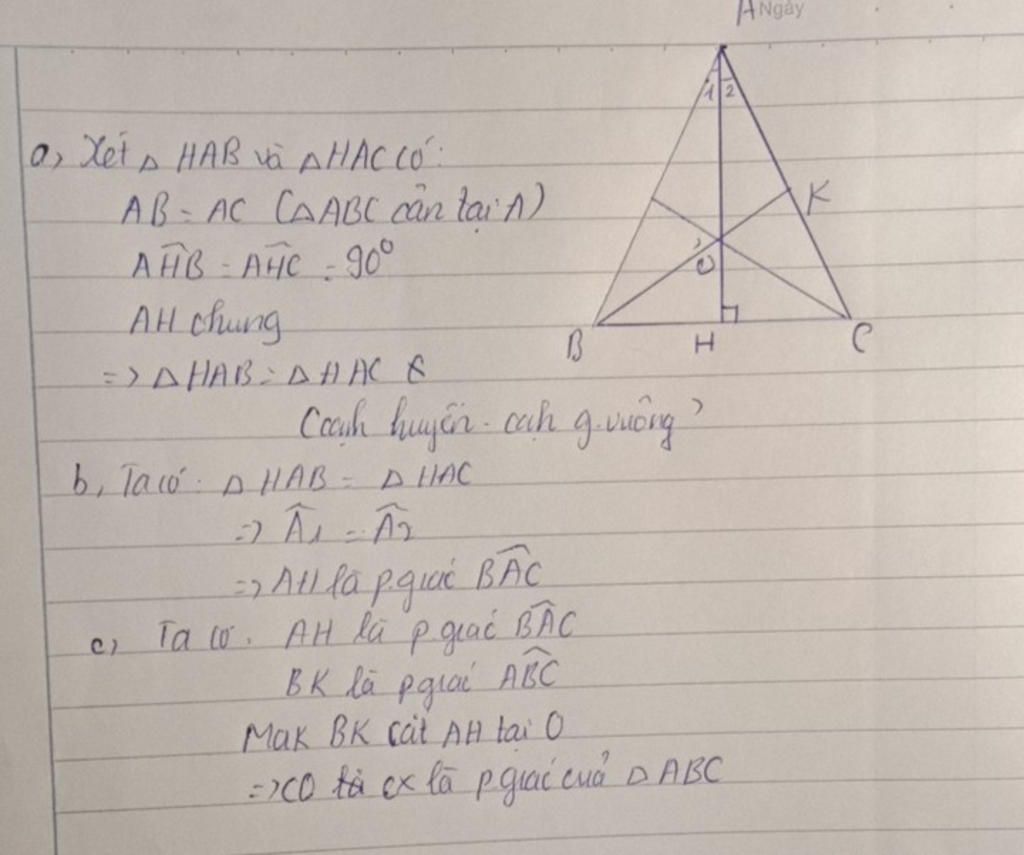 A Ngày
1 2
K
O
B H C
a, Xét △ HAB và △ HAC có:
AB = AC (△ ABC cân tại A)
AĤB = AĤC = 90°
AH chung
=> △ HAB = △ HAC
(cạnh huyền - cạh g.vuông)
b, Ta có: △ HAB = △ HAC
=> Â1 = Â2
=> AH là p.giác BÂC
c, Ta có. AH là p giác BÂC
BK là p giác AB̂C
Mak BK cắt AH tại O
=> CO là cx là p giác của △ ABC